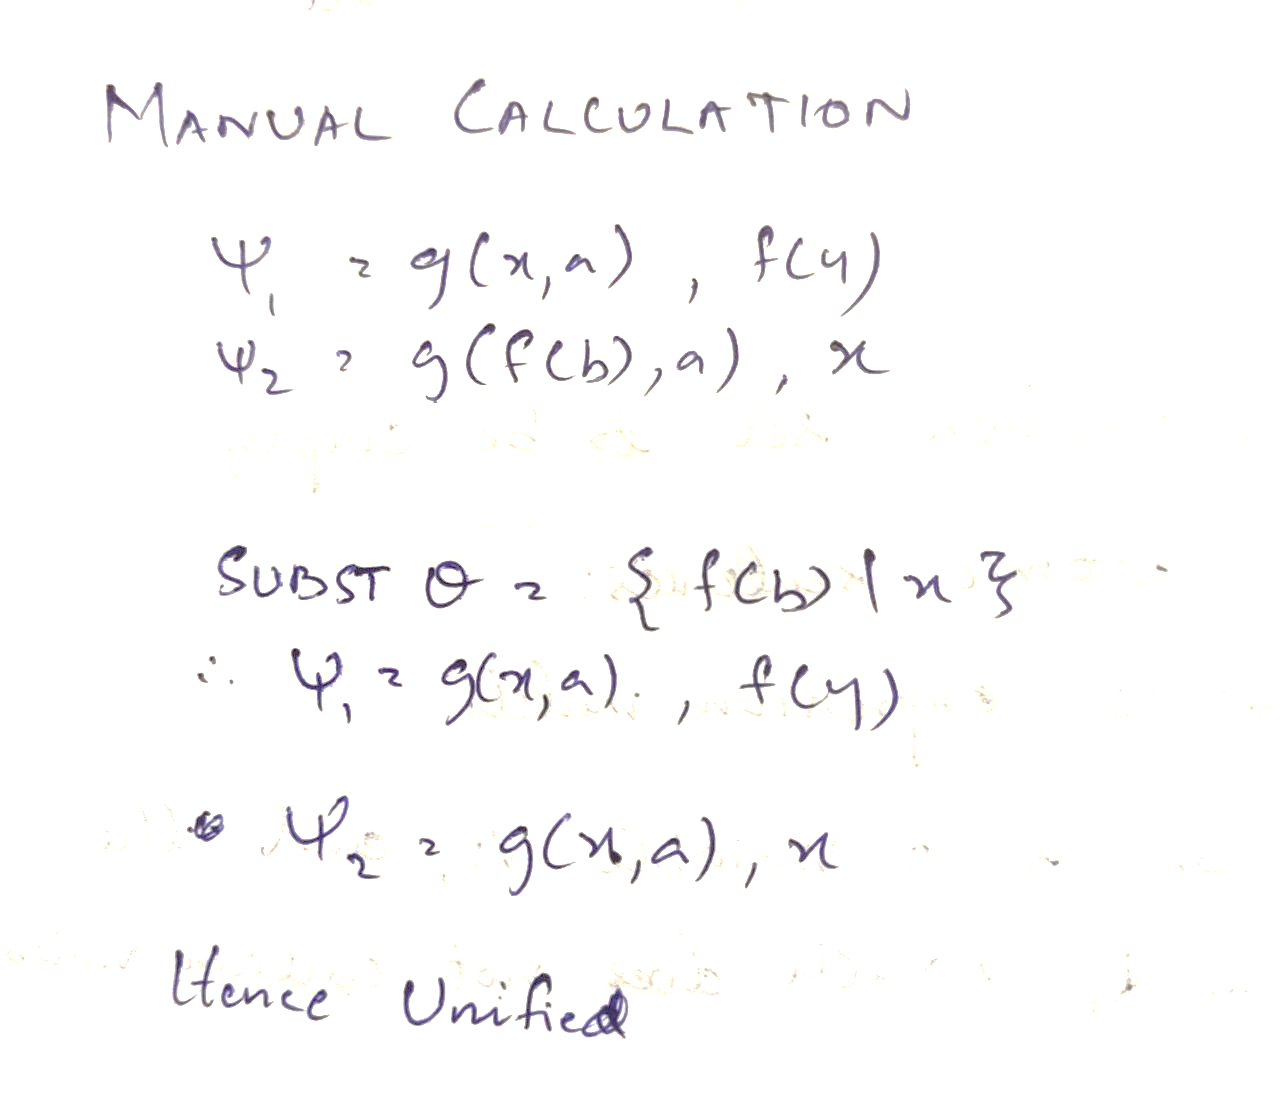 MANUAL CALCULATION
Ψ₁ = g(x,a) , f(y)
Ψ₂ = g(f(b),a) , x
SUBST θ = { f(b) / x }
∴ Ψ₁ = g(x,a) , f(y)
Ψ₂ = g(x,a) , x
Hence Unified